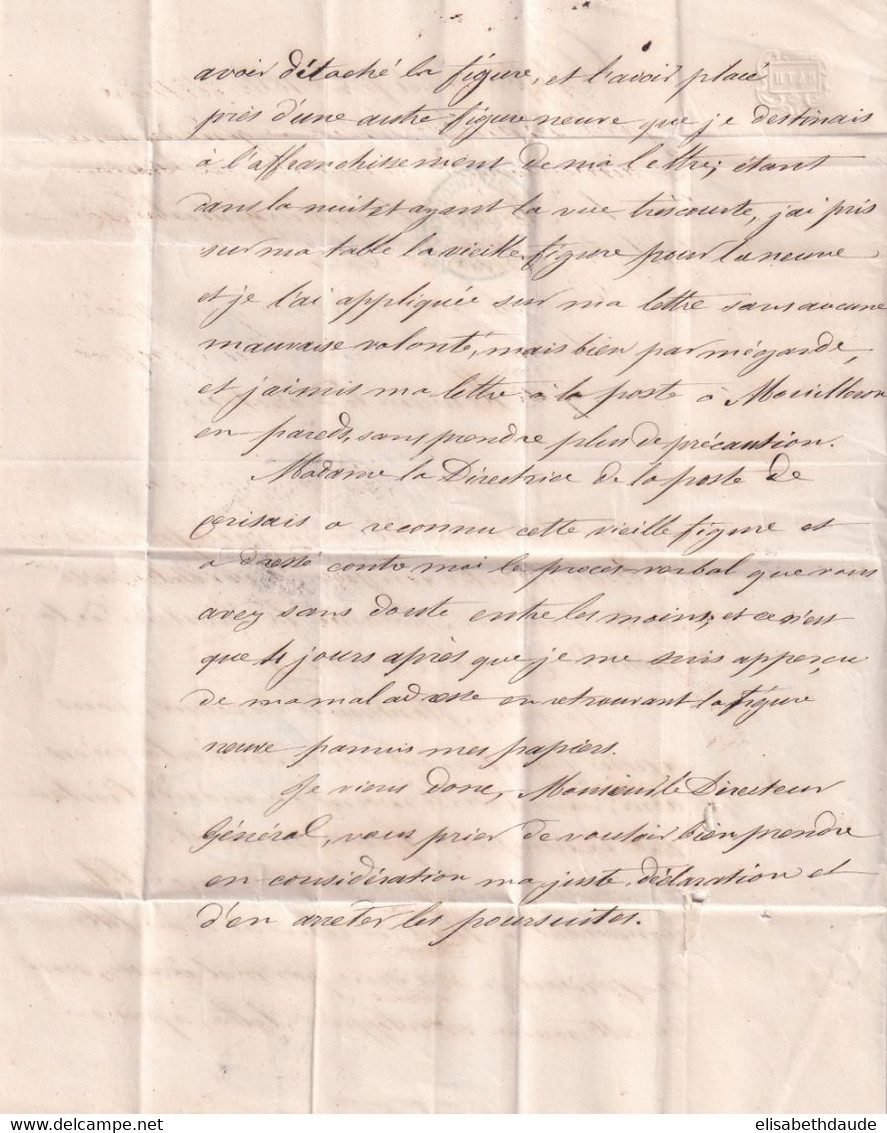 avoir détaché la figure, et l'avoir placé
près d'une autre figure neuve que je destinais
à l'affranchissement de ma lettre; étant
dans la nuit et ayant la vue très courte, j'ai pris
sur ma table la vieille figure pour la neuve
et je l'ai appliquée sur ma lettre sans aucune
mauvaise volonté, mais bien par mégarde,
et j'ai mis ma lettre à la poste à Mouilleron
en pareds, sans prendre plus de précaution.
Madame la Directrice de la poste de
Cerisais a reconnu cette vieille figure et
a dressé contre moi le procès-verbal que vous
avez sans doute entre les mains; et ce n'est
que 4 jours après que je me suis apperçu
de ma maladresse en retrouvant la figure
neuve parmis mes papiers.
Je viens donc, Monsieur le Directeur
Général, vous prier de vouloir bien prendre
en considération ma juste déclaration et
d'en arrêter les poursuites.
BATH
delcampe.net
elisabethdaude